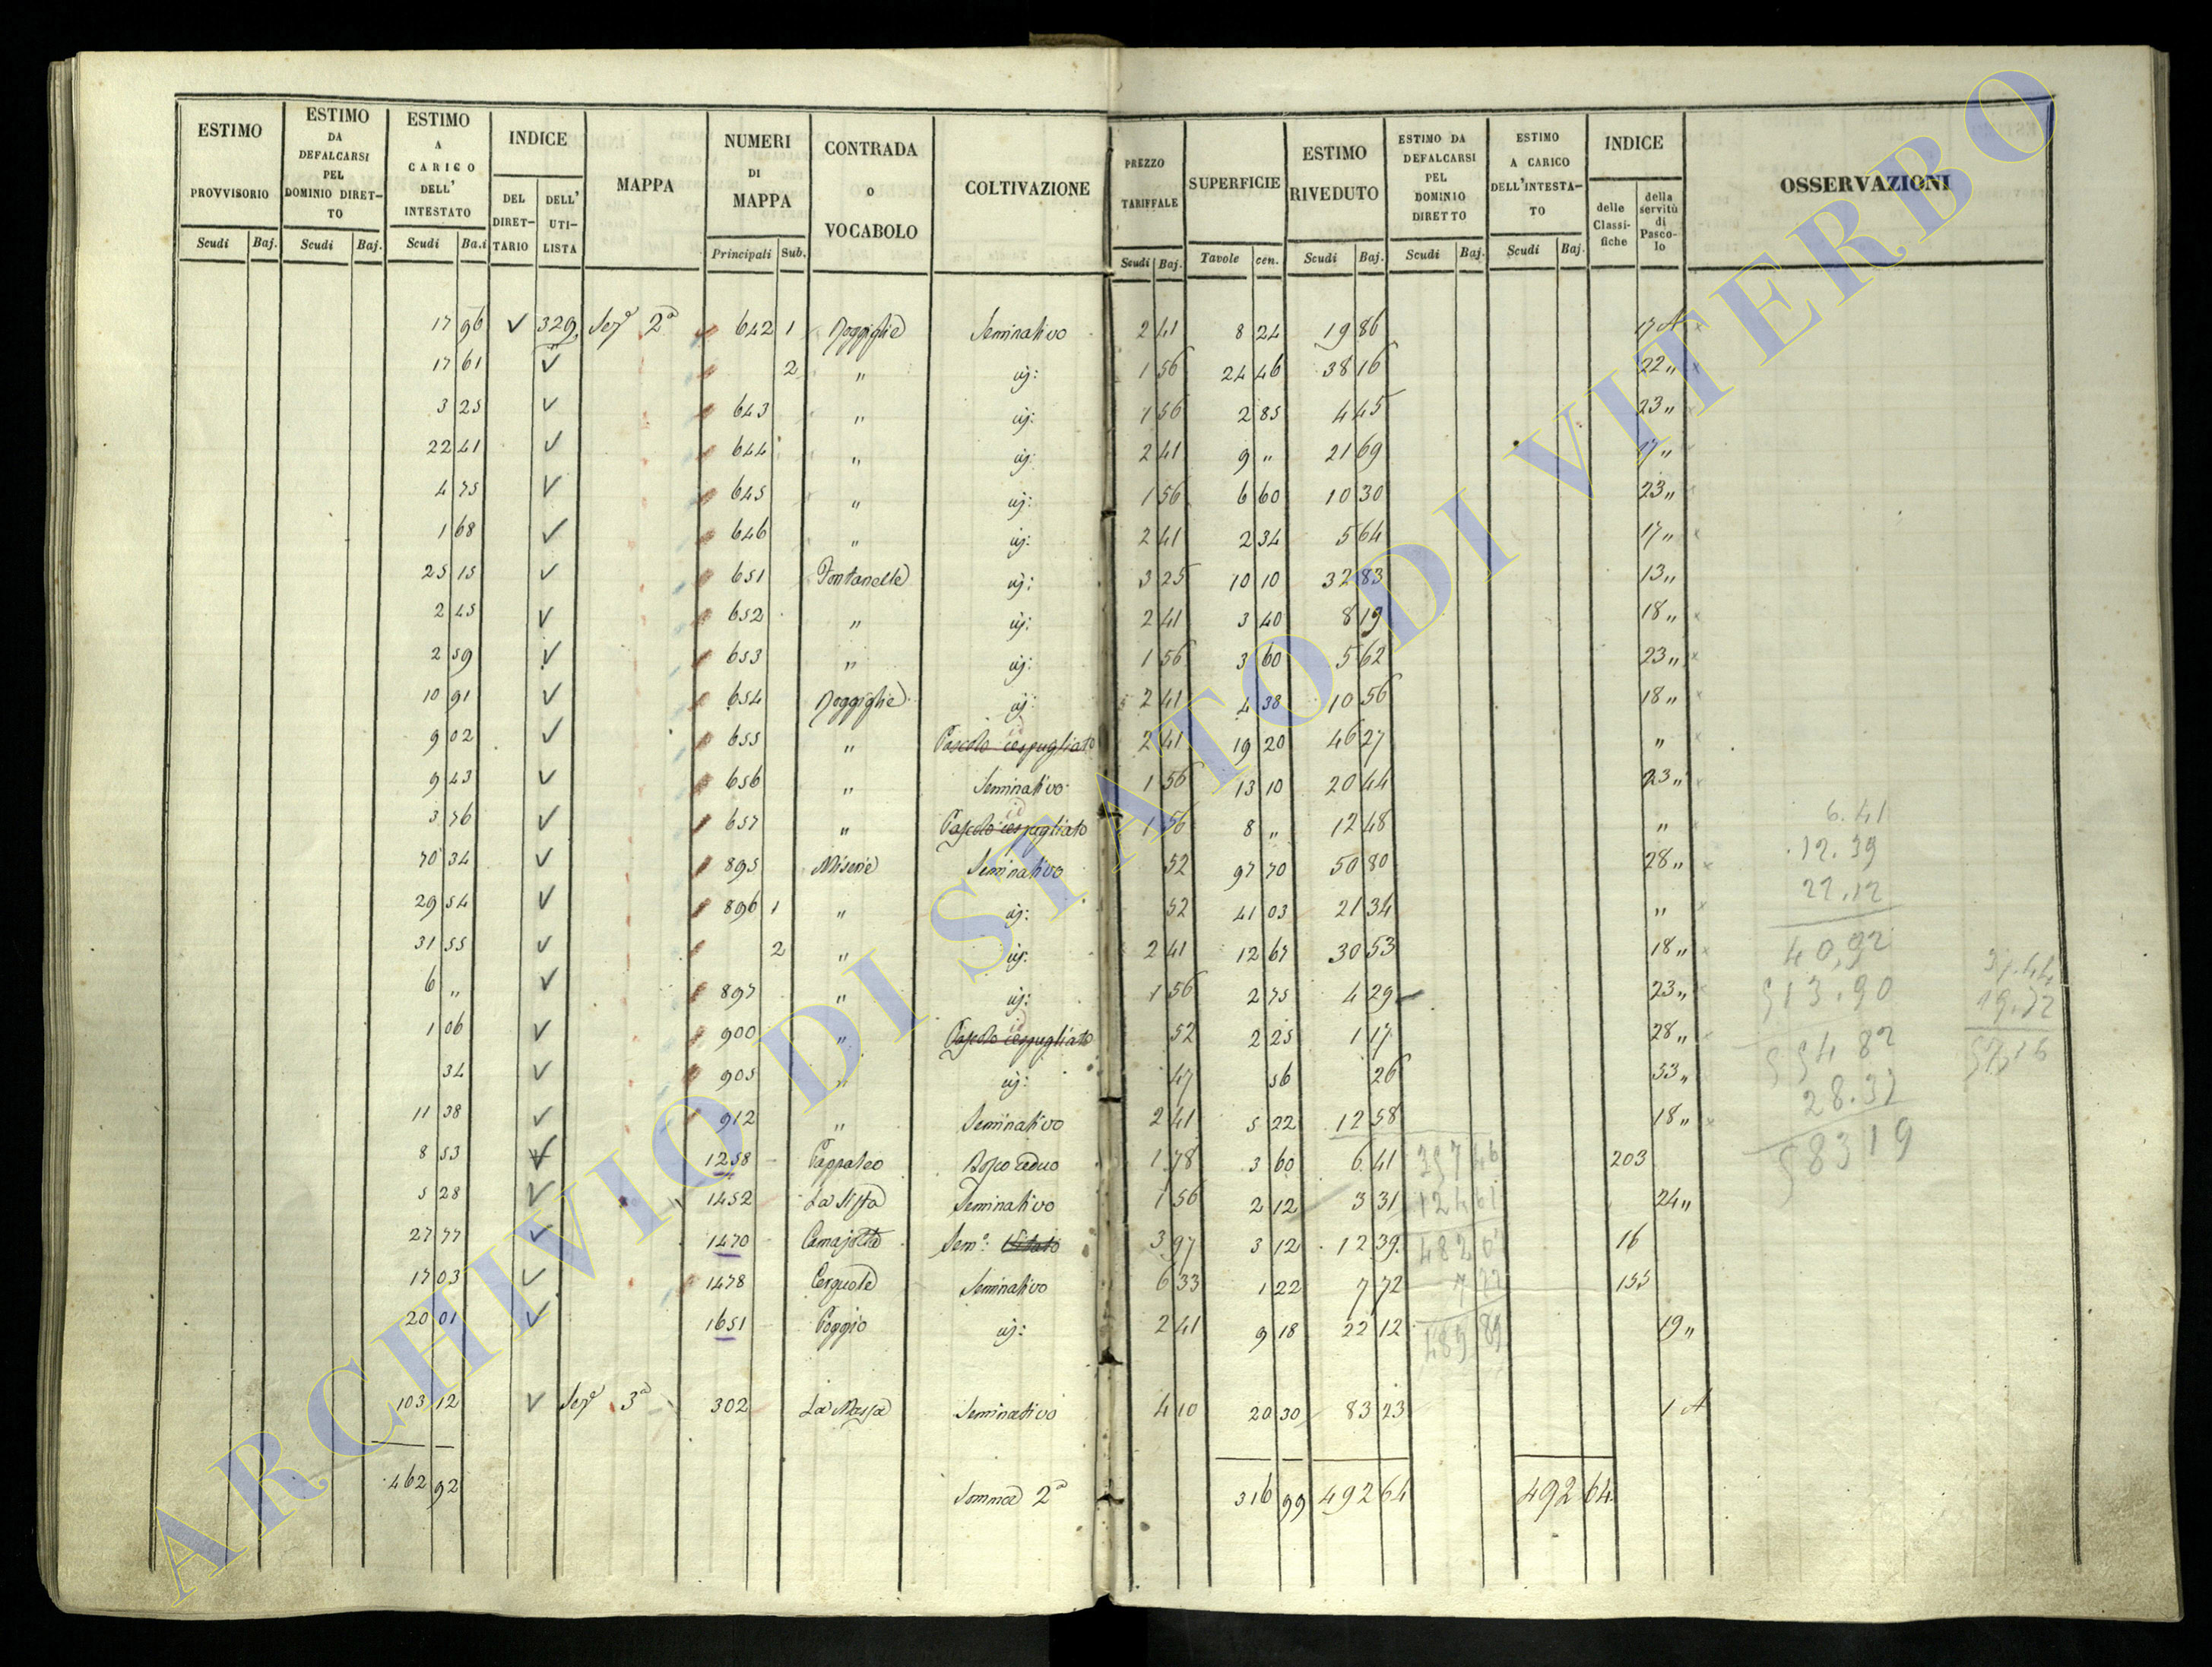 ESTIMO PROVVISORIO Scudi Baj. | ESTIMO DA DEFALCARSI PEL DOMINIO DIRET-TO Scudi Baj. | ESTIMO A CARICO DELL' INTESTATO Scudi Ba.i | INDICE DEL DIRET-TARIO DELL' UTI-LISTA | MAPPA | NUMERI DI MAPPA Principali Sub. | CONTRADA o VOCABOLO | COLTIVAZIONE | PREZZO TARIFFALE Scudi Baj. | SUPERFICIE Tavole cen. | ESTIMO RIVEDUTO Scudi Baj. | ESTIMO DA DEFALCARSI PEL DOMINIO DIRETTO Scudi Baj. | ESTIMO A CARICO DELL'INTESTA-TO Scudi Baj. | INDICE delle Classi-fiche della servitù di Pasco-lo | OSSERVAZIONI
17 96 √ 329 Sezª 2ª 642 1 Seminativo 2 41 8 24 19 86 17 A
17 61 √ 2 " id: 1 56 24 46 38 16 22 "
3 25 √ 643 " id: 1 56 2 85 4 45 23 "
22 41 √ 644 " id: 2 41 9 " 21 69 17 "
4 75 √ 645 " id: 1 56 6 60 10 30 23 "
1 68 √ 646 " id: 2 41 2 34 5 64 17 "
25 15 √ 651 Fontanelle id: 3 25 10 10 32 83 13 "
2 45 √ 652 " id: 2 41 3 40 8 19 18 "
2 59 √ 653 " id: 1 56 3 60 5 62 23 "
10 91 √ 654 id: 2 41 4 38 10 56 18 "
9 02 √ 655 " Pascolo cespugliato 2 41 19 20 46 27 "
9 43 √ 656 " Seminativo 1 56 13 10 20 44 23 "
3 76 √ 657 " Pascolo cespugliato 1 56 8 " 12 48 "
70 34 √ 895 Miserie Seminativo 52 97 70 50 80 28 "
29 54 √ 896 1 " id: 52 41 03 21 34 "
31 55 √ 2 " id: 2 41 12 67 30 53 18 "
6 " √ 897 " id: 1 56 2 75 4 29 23 "
1 06 √ 900 " Pascolo cespugliato 52 2 25 1 17 28 "
34 √ 905 " id: 47 56 26 33 "
11 38 √ 912 " Seminativo 2 41 5 22 12 58 18 "
8 53 √ 1258 Pappaleo Bosco ceduo 1 78 3 60 6 41 203
5 28 √ 1452 Seminativo 1 56 2 12 3 31 24 "
27 77 √ 1470 Semº Vitato 3 97 3 12 12 39 16
17 03 √ 1478 Cerquete Seminativo 6 33 1 22 7 72 155
20 01 √ 1651 Poggio id: 2 41 9 18 22 12 19 "
103 12 √ Sezª 3ª 302 La Massa Seminativo 4 10 20 30 83 23 1 A
462 92 Somma 2ª 316 99 492 64 492 64
6.41
12.39
22.12
40,92
513.90
554 82
28.37
583 19
ARCHIVIO DI STATO DI VITERBO